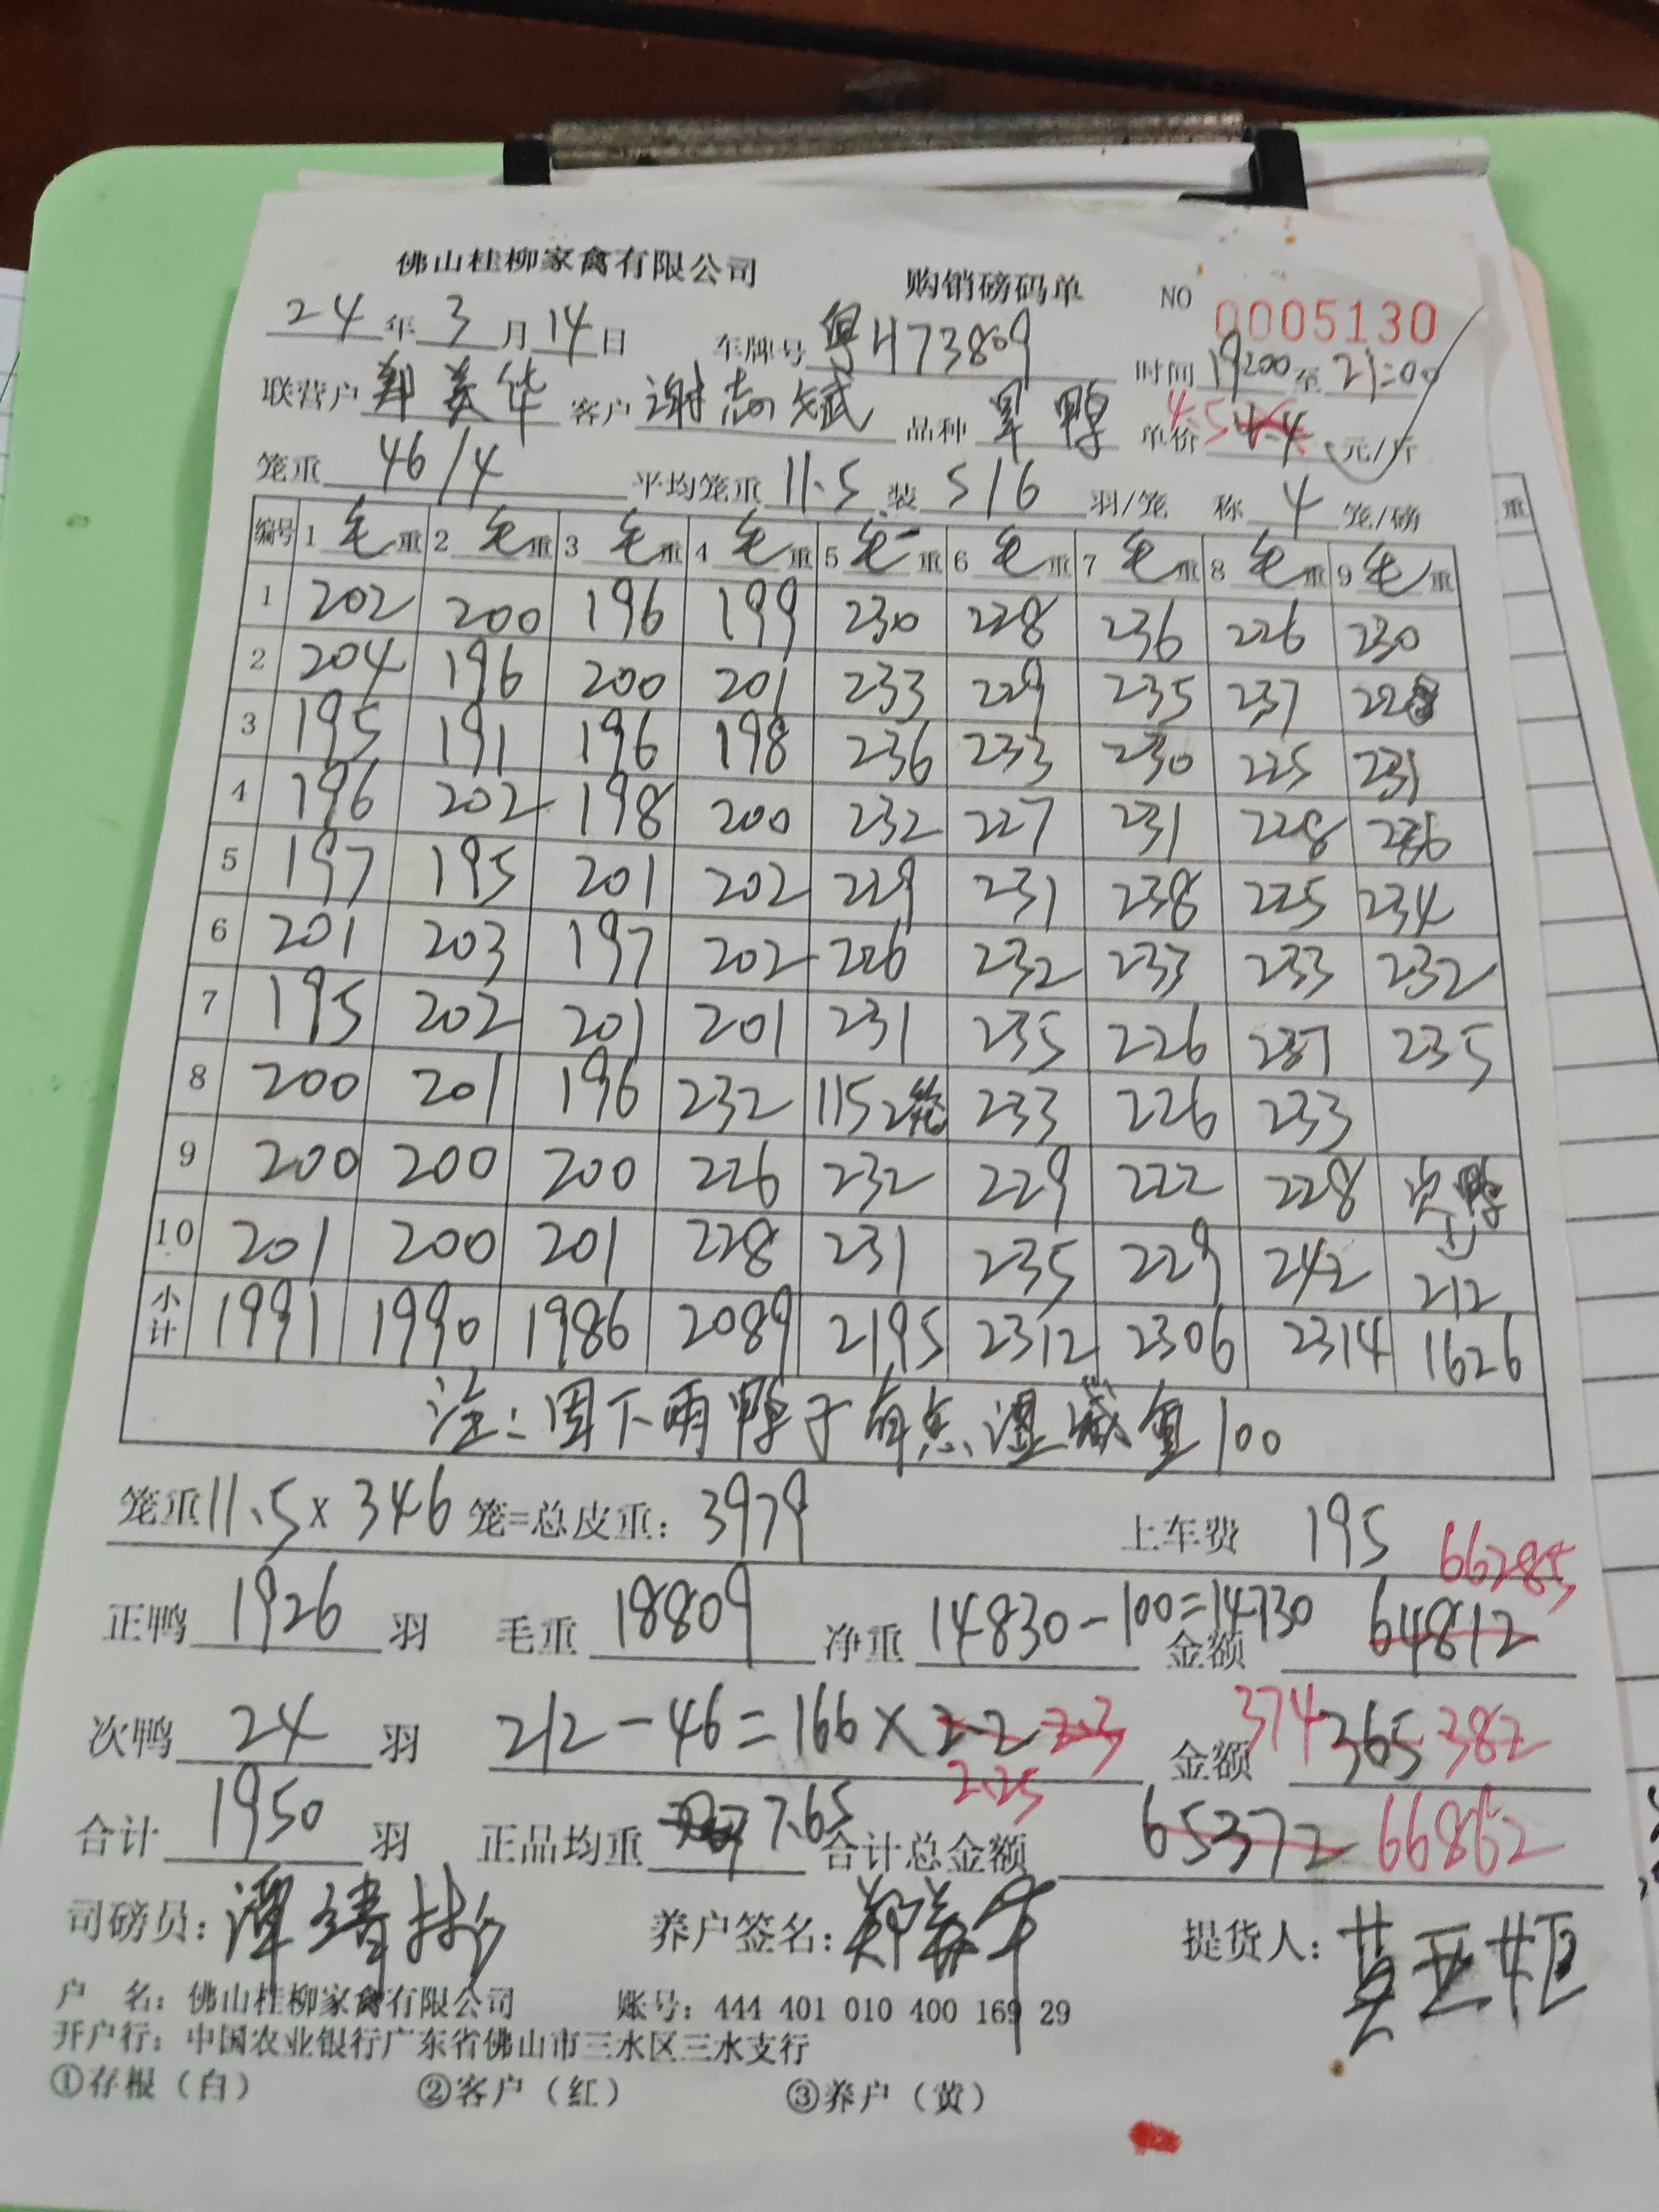 佛山桂柳家禽有限公司 购销磅码单 NO 0005130
24年3月14日 车牌号 粤H73809 时间 19:00至21:00
联营户 郑美华 客户 谢志斌 品种 旱鸭 单价 4.5 4.4 元/斤
笼重 46/4 平均笼重 11.5 装 5/6 羽/笼 称 4 笼/磅
编号 1毛重 2毛重 3毛重 4毛重 5毛重 6毛重 7毛重 8毛重 9毛重
1 202 200 196 199 230 228 236 226 230
2 204 196 200 201 233 229 235 237 228
3 195 191 196 198 236 233 230 225 231
4 196 202 198 200 232 227 231 228 236
5 197 195 201 202 229 231 238 225 234
6 201 203 197 202 226 232 233 233 232
7 195 202 201 201 231 235 226 237 235
8 200 201 196 232 115 2笼 233 226 233
9 200 200 200 226 232 229 222 228 次鸭
10 201 200 201 228 231 235 229 242 212
小计 1991 1990 1986 2089 2195 2312 2306 2314 1626
注:因下雨鸭子有点湿减重100
笼重11.5×346笼=总皮重:3979 上车费 195
66285
正鸭 1926 羽 毛重 18809 净重 14830-100=14730 金额 64812
次鸭 24 羽 212-46=166×2.2 2.3 金额 374 365 382
2.25
合计 1950 羽 正品均重 7.65 合计总金额 65372 66862
司磅员: 养户签名:郑美华 提货人:
户 名:佛山桂柳家禽有限公司 账号:444 401 010 400 169 29
开户行:中国农业银行广东省佛山市三水区三水支行
①存根(白) ②客户(红) ③养户(黄)
重